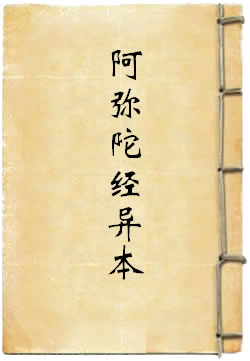 阿弥陀经异本